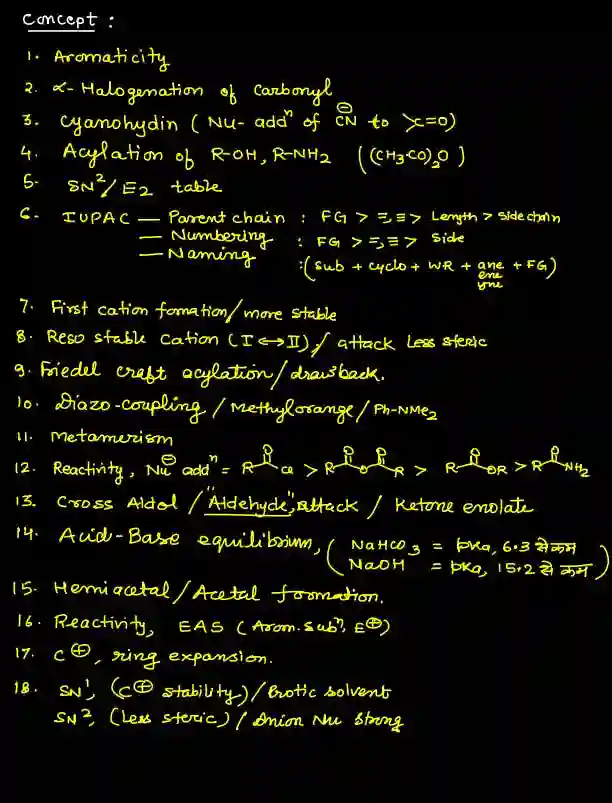 Concept :
1. Aromaticity
2. α- Halogenation of Carbonyl
3. Cyanohydin ( Nu- addⁿ of C̄N to >C=O)
4. Acylation of R-OH, R-NH₂ ( (CH₃CO)₂O )
5- SN²/ E2 table
6- IUPAC — Parent chain : FG > =, ≡ > Length > Side chain
— Numbering : FG > =, ≡ > Side
— Naming :( Sub + cyclo + WR + ane + FG)
ene
yne
7. First cation fomation/ more stable
8. Reso stable cation ( I ↔ II ) / attack Less steric
9. Friedel craft acylation / drawback.
10. Diazo-coupling / Methylorange / Ph-NMe₂
11. Metamerism
12. Reactivity, Nu⊖ addⁿ = R Cl > R O R > R OR > R NH₂
13. Cross Aldol / "Aldehyde", attack / Ketone enolate
14. Acid-Base equilibrium, ( NaHCO₃ = pka, 6.3 से कम
NaOH = pka, 15.2 से कम )
15. Hemiacetal / Acetal formation.
16. Reactivity, EAS ( Arom. Subⁿ, E⊕)
17. C⊕, ring expansion.
18. SN¹, (C⊕ stability) / Protic solvent
SN², (Less steric) / Anion Nu strong